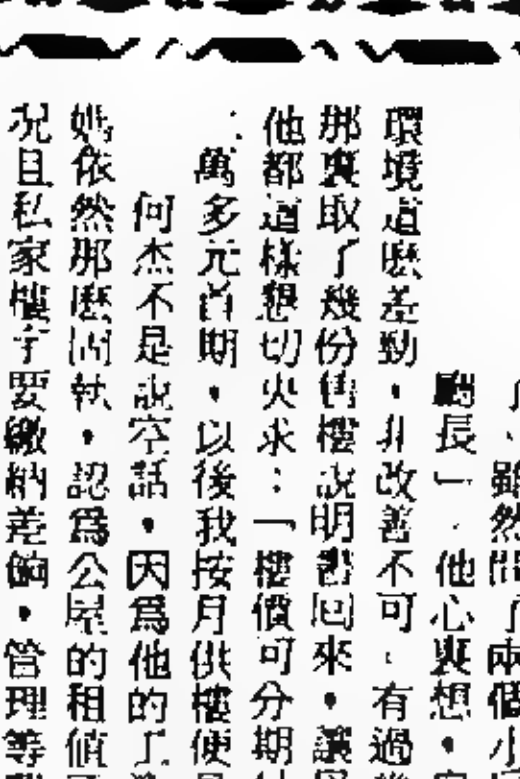 雖然間了兩個小
廳長」，他心裏想，
環境這麼差勁，非改善不可，有過
那裏取了幾份售樓說明書回來，讓
他都這樣懇切央求：「樓價可分期
萬多元首期，以後我按月供樓便
何杰不是說空話，因為他的
媽依然那麼固執，認為公屋的租值
況且私家樓宇要繳納差餉，管理等